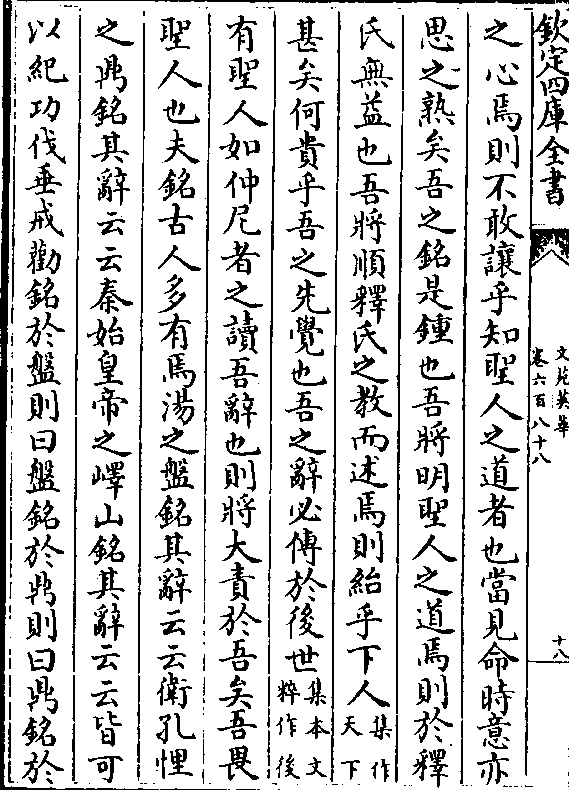 欽定四庫全書
文苑英華
卷六百八十八
十八
之心焉則不敢讓乎知聖人之道者也當見命時意亦
思之熟矣吾之銘是鍾也吾將明聖人之道焉則於釋
氏無益也吾將順釋氏之教而述焉則紿乎下人集作天下
甚矣何貴乎吾之先覺也吾之辭必傳於後世集本文粹作後
有聖人如仲尼者之讀吾辭也則將大責於吾矣吾畏
聖人也夫銘古人多有焉湯之盤銘其辭云云衛孔悝
之鼎銘其辭云云秦始皇帝之嶧山銘其辭云云皆可
以紀功伐垂戒勸銘於盤則曰盤銘於鼎則曰鼎銘於